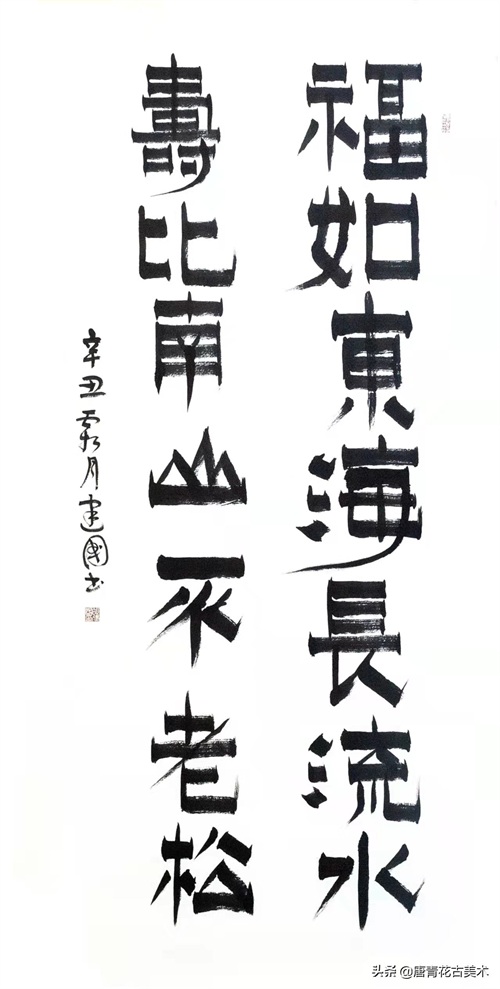 福如東海長流水
壽比南山不老松
辛丑霜月建國书
头条 @唐青花古美术